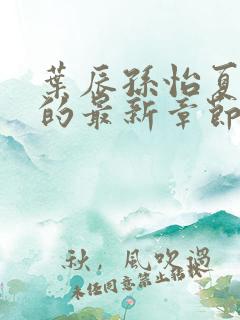 葉辰孫怡夏
的最新章節
秋，風吹過
未經同意禁止轉載